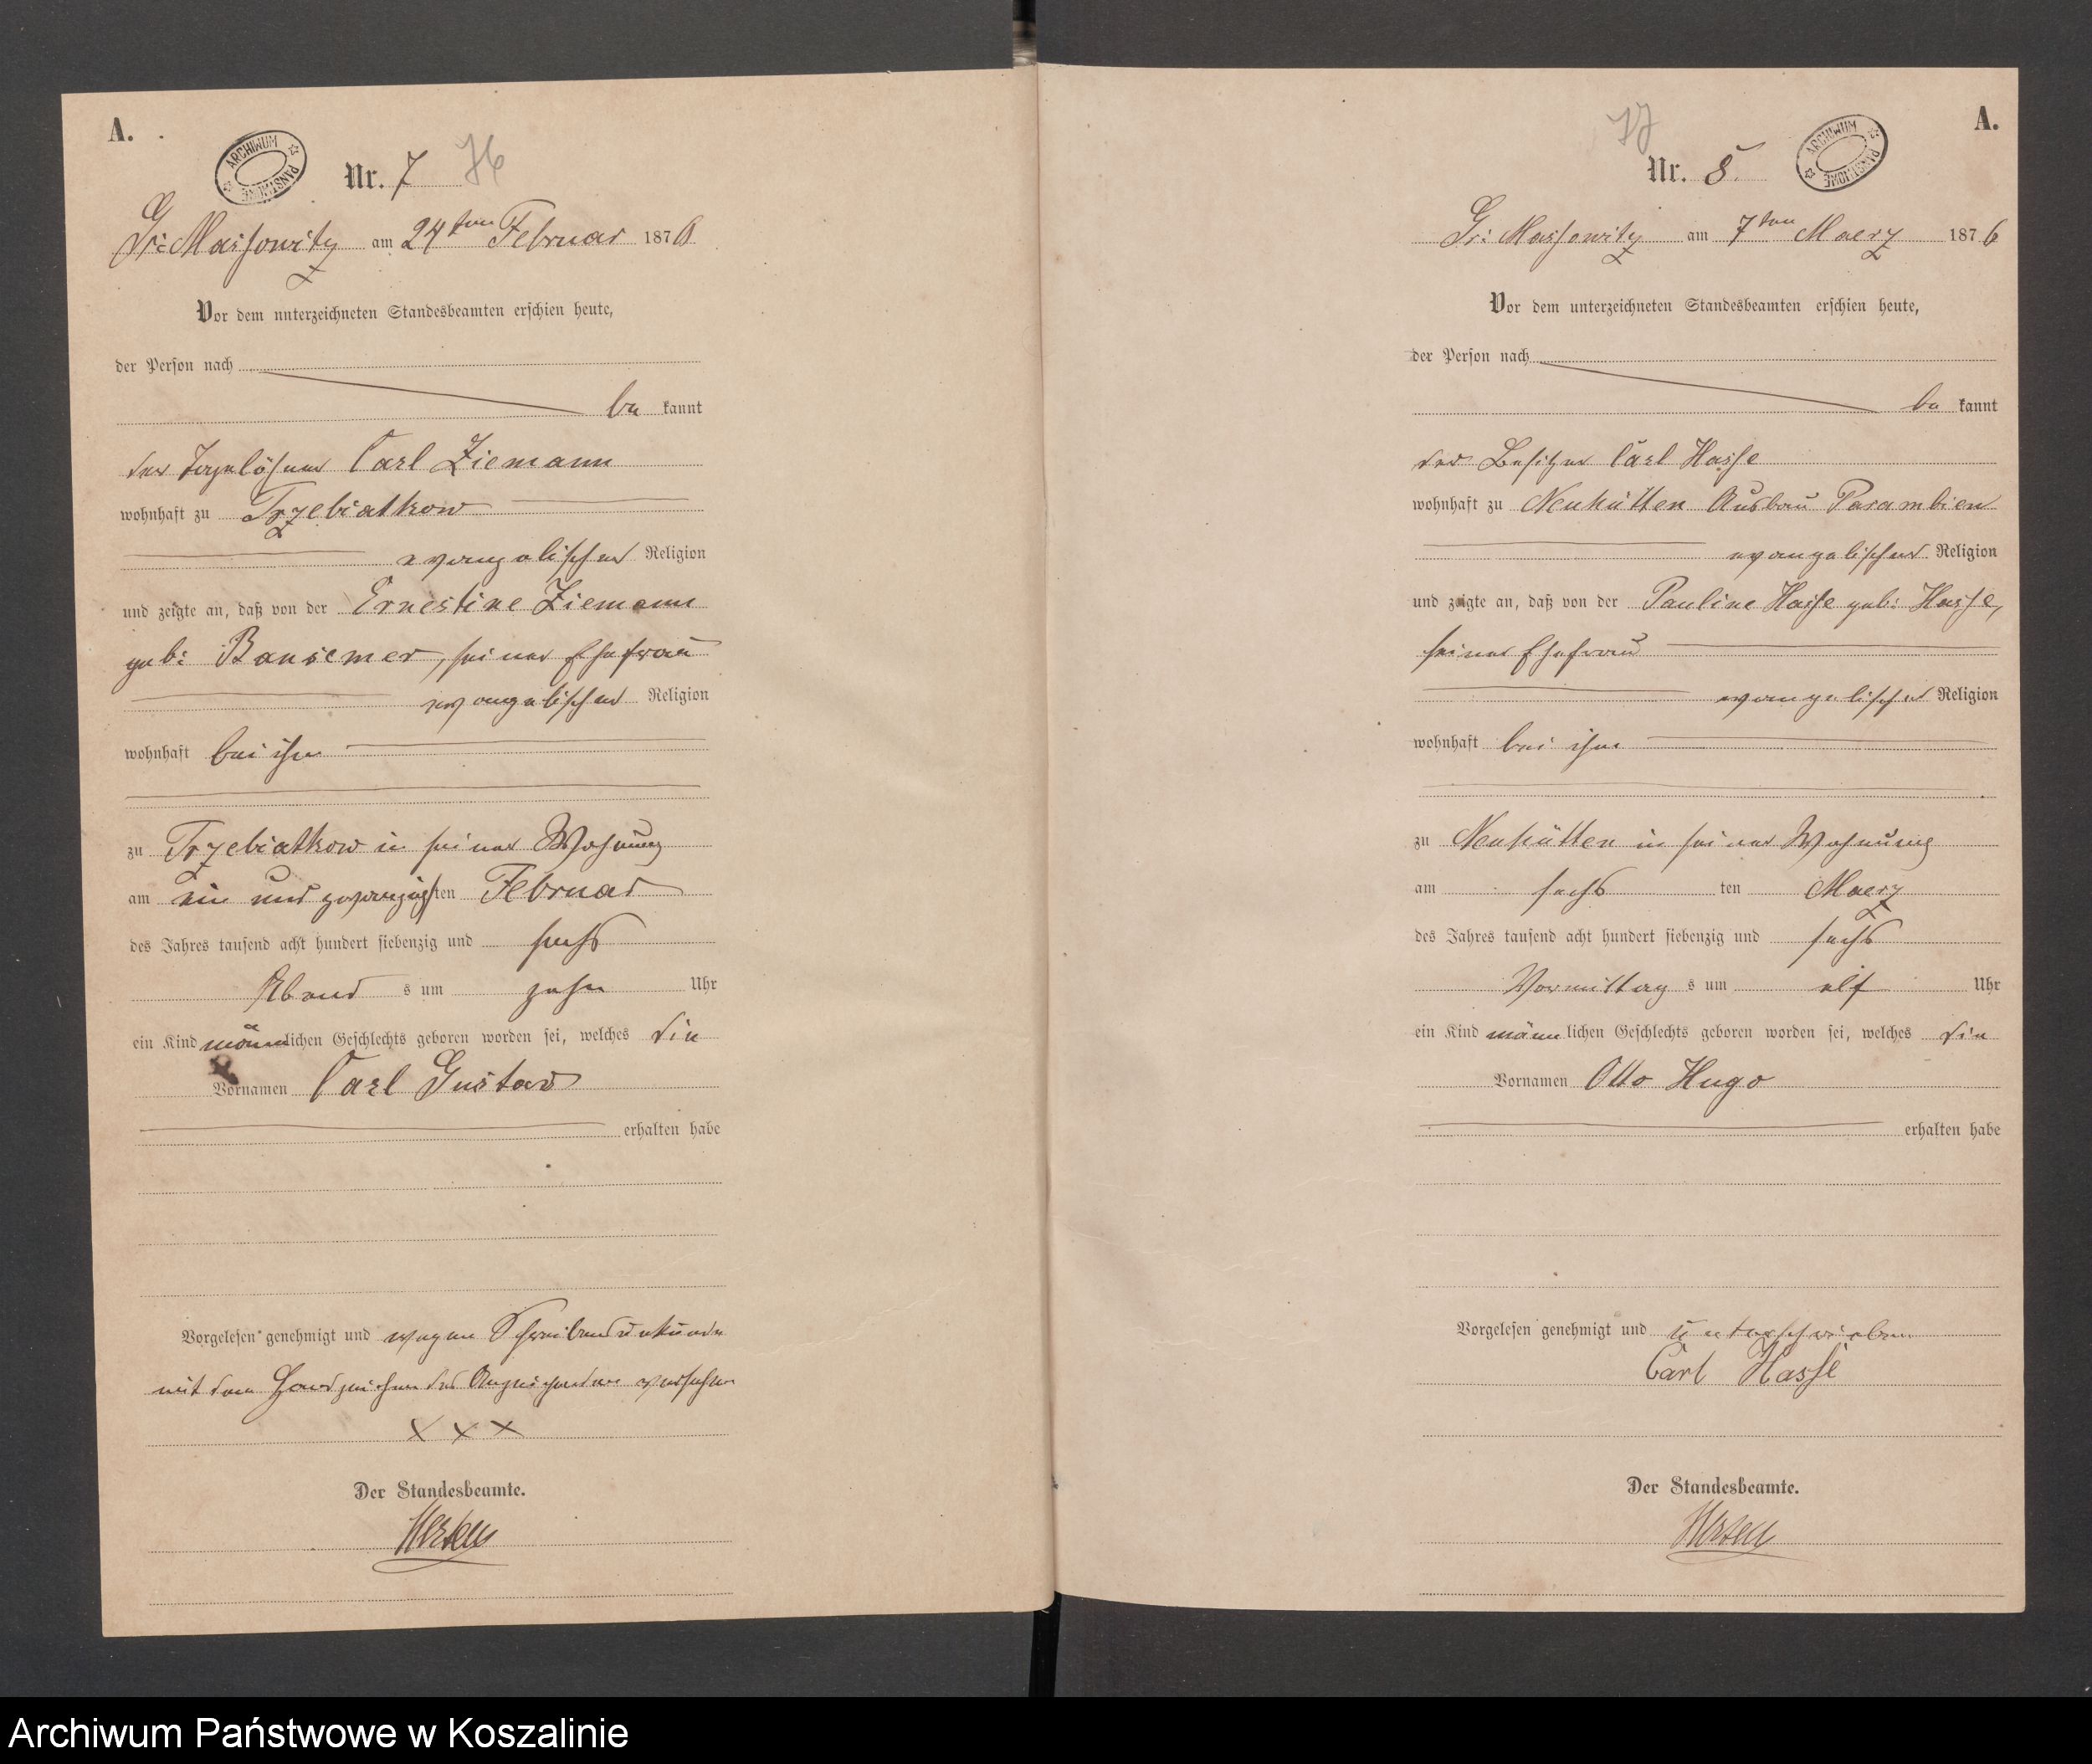 A.
ARCHIWUM PAŃSTWOWE
Nr. 7 76
Gr: Massowitz am 24ten Februar 1876
Vor dem unterzeichneten Standesbeamten erschien heute,
der Person nach
be kannt
der Tagelöhner Carl Ziemann
wohnhaft zu Trzebiatkow
evangelischer Religion
und zeigte an, daß von der Ernestine Ziemann
geb: Bansemer, seiner Ehefrau
evangelischer Religion
wohnhaft bei ihm
zu Trzebiatkow in seiner Wohnung
am ein und zwanzigsten Februar
des Jahres tausend acht hundert siebenzig und sechs
Abend s um zehn Uhr
ein Kind männlichen Geschlechts geboren worden sei, welches die
Vornamen Carl Gustav
erhalten habe
Vorgelesen genehmigt und wegen Schreibensunkunde
mit dem Handzeichen des Anzeigenden versehen
X X X
Der Standesbeamte.
A.
77
ARCHIWUM PAŃSTWOWE
Nr. 8.
Gr: Massowitz am 7ten Maerz 1876
Vor dem unterzeichneten Standesbeamten erschien heute,
der Person nach
be kannt
der Besitzer Carl Hasse
wohnhaft zu Neuhütten Ausbau Parambien
evangelischer Religion
und zeigte an, daß von der Pauline Hasse geb: Hasse,
seiner Ehefrau
evangelischer Religion
wohnhaft bei ihm
zu Neuhütten in seiner Wohnung
am sechs ten Maerz
des Jahres tausend acht hundert siebenzig und sechs
Vormittag s um elf Uhr
ein Kind männlichen Geschlechts geboren worden sei, welches die
Vornamen Otto Hugo
erhalten habe
Vorgelesen genehmigt und unterschrieben
Carl Hasse
Der Standesbeamte.
Archiwum Państwowe w Koszalinie